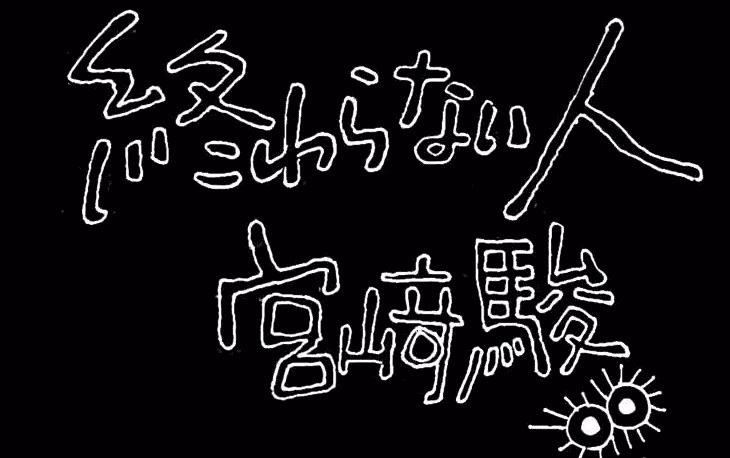 終わらない人
宮﨑駿